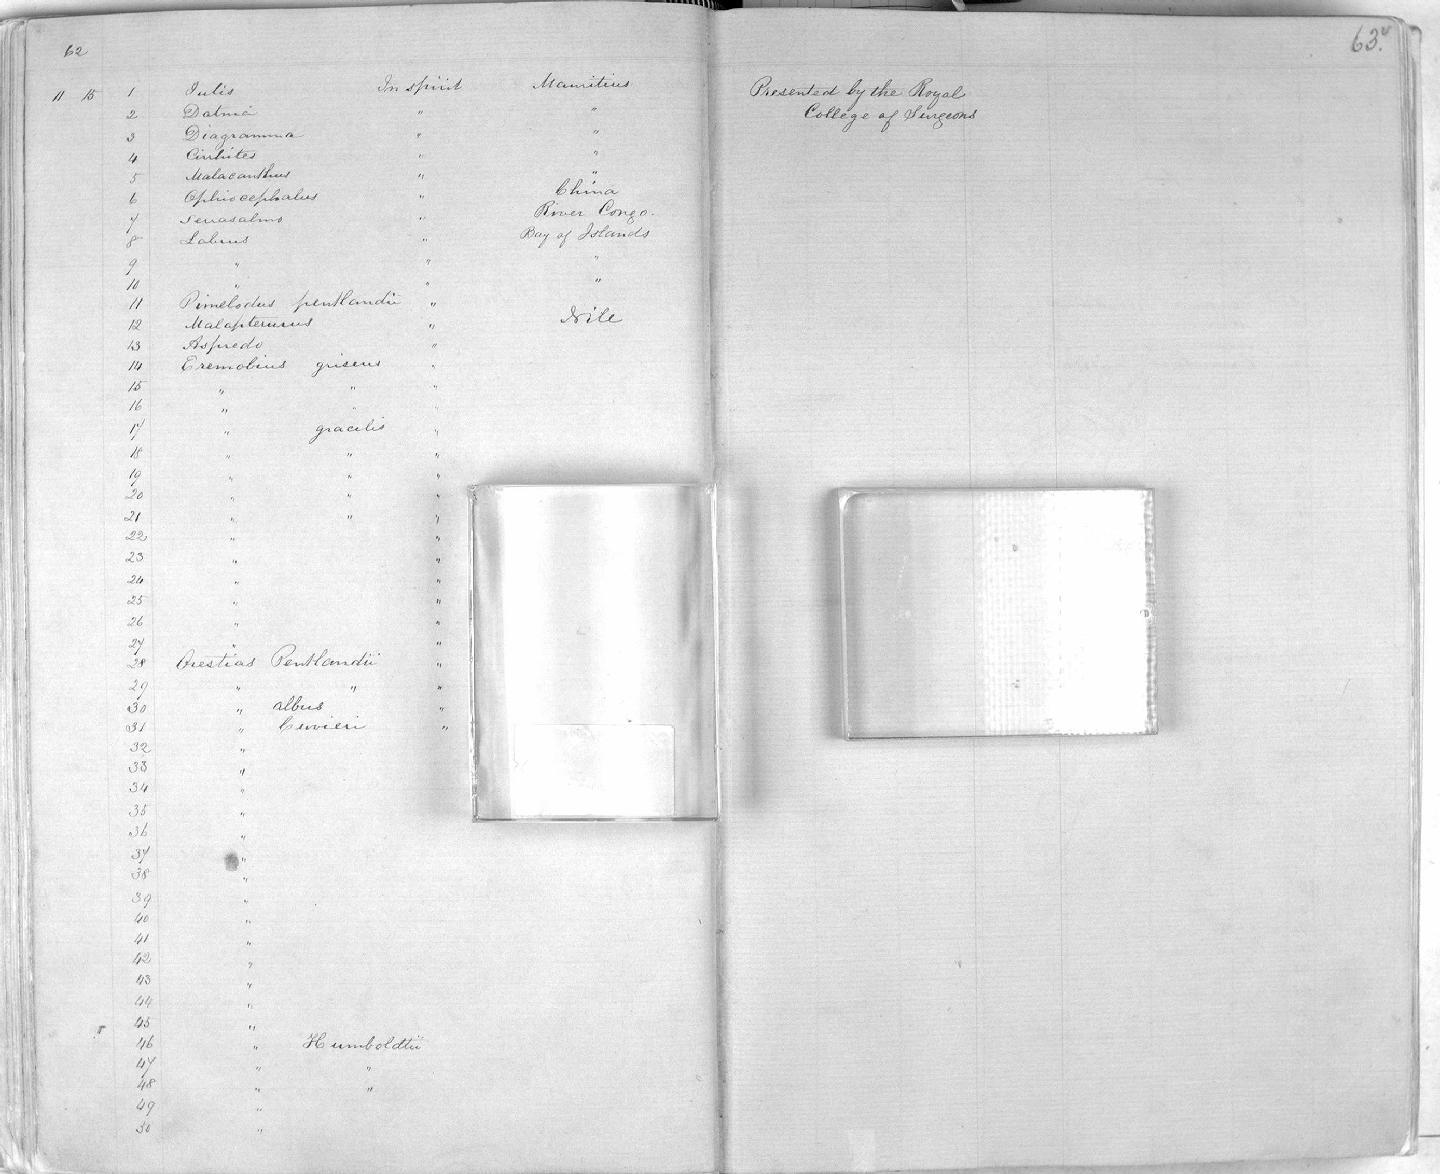 62
11 15 1 Julis In spirit Mauritius
2 Datnia " "
3 Diagramma " "
4 Cirrhites " "
5 Malacanthus " "
6 Ophiocephalus " China
7 Serrasalmo " River Congo.
8 Labrus " Bay of Islands
9 " " "
10 " " "
11 Pimelodus pentlandii "
12 Malapterurus " Nile
13 Aspredo "
14 Eremobius griseus "
15 " " "
16 " " "
17 " gracilis "
18 " " "
19 " " "
20 " " "
21 " " "
22 " "
23 " "
24 " "
25 " "
26 " "
27 " "
28 Orestias Pentlandii "
29 " " "
30 " albus "
31 " Cuvieri "
32 "
33 "
34 "
35 "
36 "
37 "
38 "
39 "
40 "
41 "
42 "
43 "
44 "
45 "
46 " Humboldtii
47 " "
48 " "
49 "
50 "
63.
Presented by the Royal
College of Surgeons